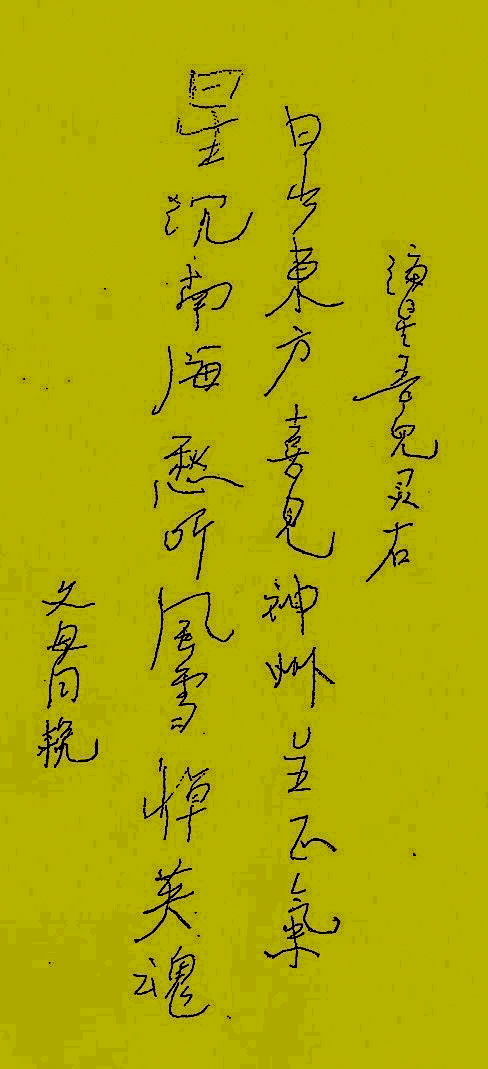 海星吾儿灵右
日出東方喜見神州生正氣
星沉南海愁听風雪悼英魂
父母同挽